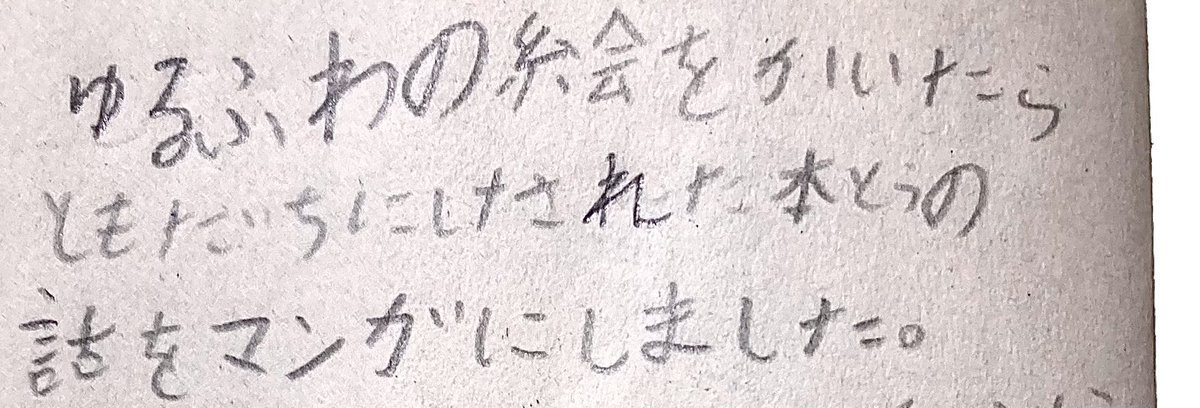 ゆるふわの絵をかいたら
ともだちにけされた本とうの
話をマンガにしました。